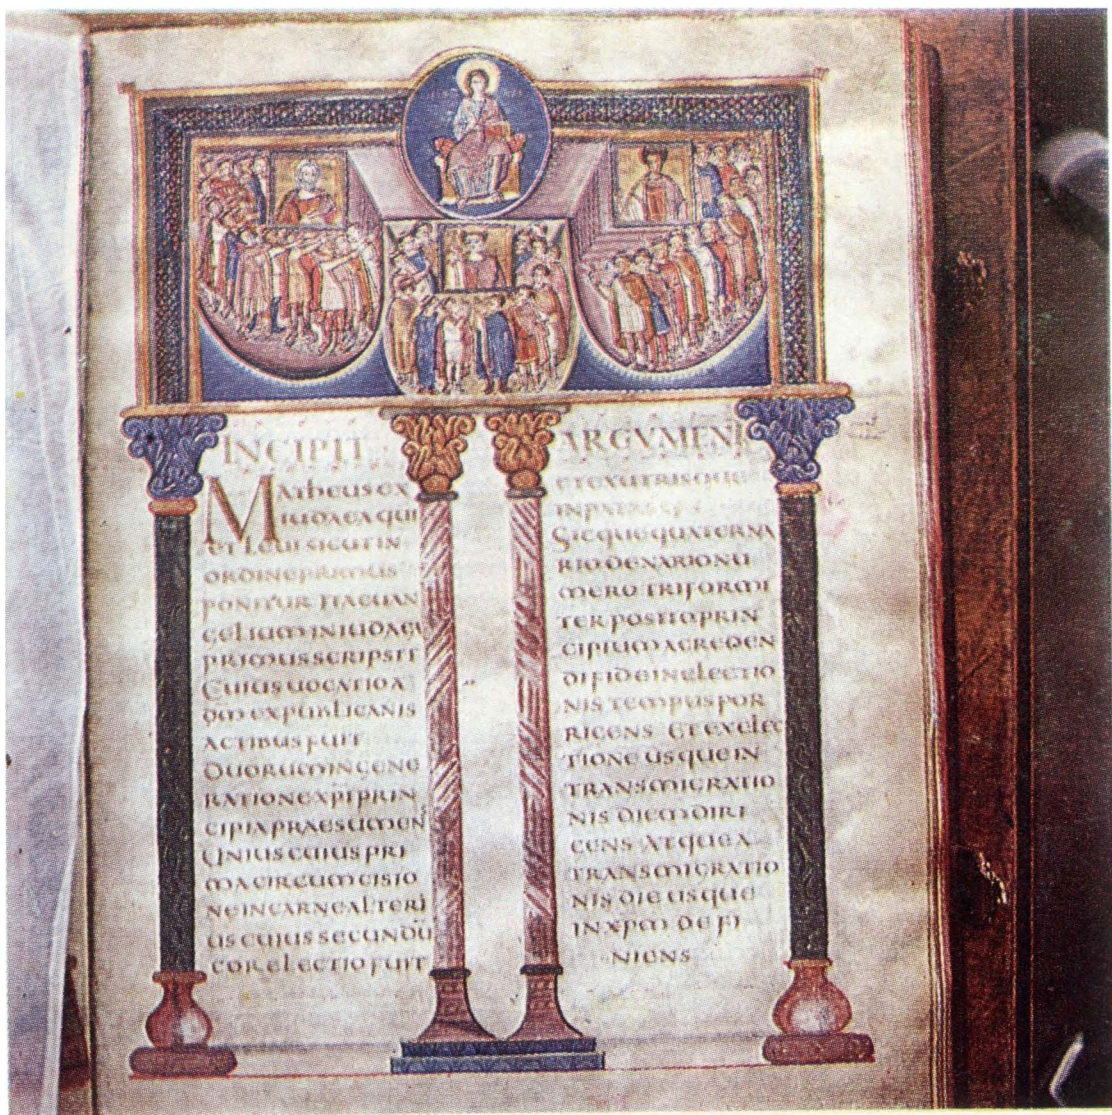 INCIPIT
MATHEUS EX
IUDAEA QUI
ET LEUI SICUT IN
ORDINE PRIMUS
PONITUR ITA EUAN
GELIUM IN IUDAEA
PRIMUS SCRIPSIT
CUIUS UOCATIO A
DM EX PUBLICANIS
ACTIBUS FUIT
DUORUM IN GENE
RATIONE XPI PRIN
CIPIA PRAESUMENS
UNIUS CUIUS PRI
MA CIRCUMCISIO
NE IN CARNE ALTERI
US CUIUS SECUNDU
COR ELECTIO FUIT
ARGUMEN
ET EX UTRISQUE
IN PATRES
SICQUE QUATERNA
RIO DENARIO NU
MERO TRIFORMI
TER POSITO PRIN
CIPIUM A CREDEN
DI FIDE IN ELECTIO
NIS TEMPUS POR
RIGENS ET EX ELEC
TIONE USQUE IN
TRANSMIGRATIO
NIS DIEM DIRI
GENS ATQUE A
TRANSMIGRATIO
NIS DIE USQUE
IN XPM DEFI
NIENS